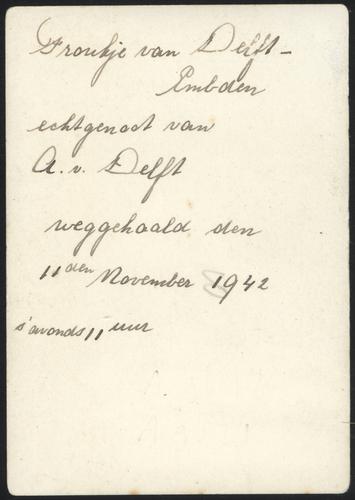 Froukje van Delft-
Embden
echtgenoot van
A. v. Delft
weggehaald den
11den November 1942
s'avonds 11 uur